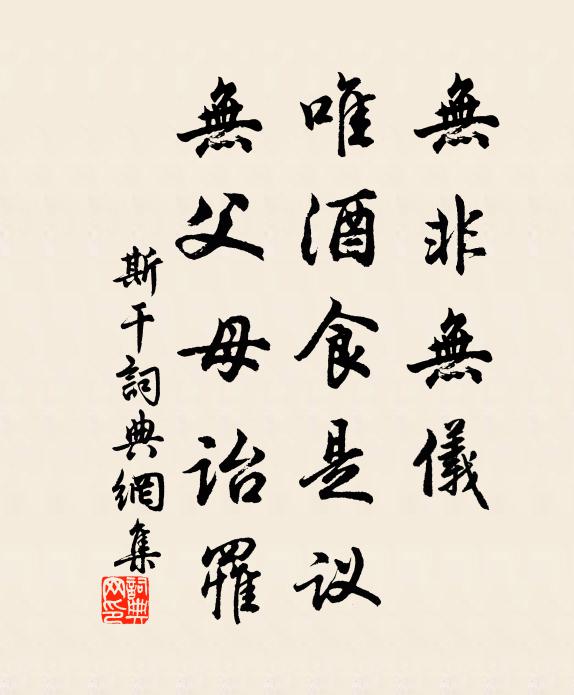 無非無儀
唯酒食是议
無父母詒罹
斯干詞典網集
詞典网印